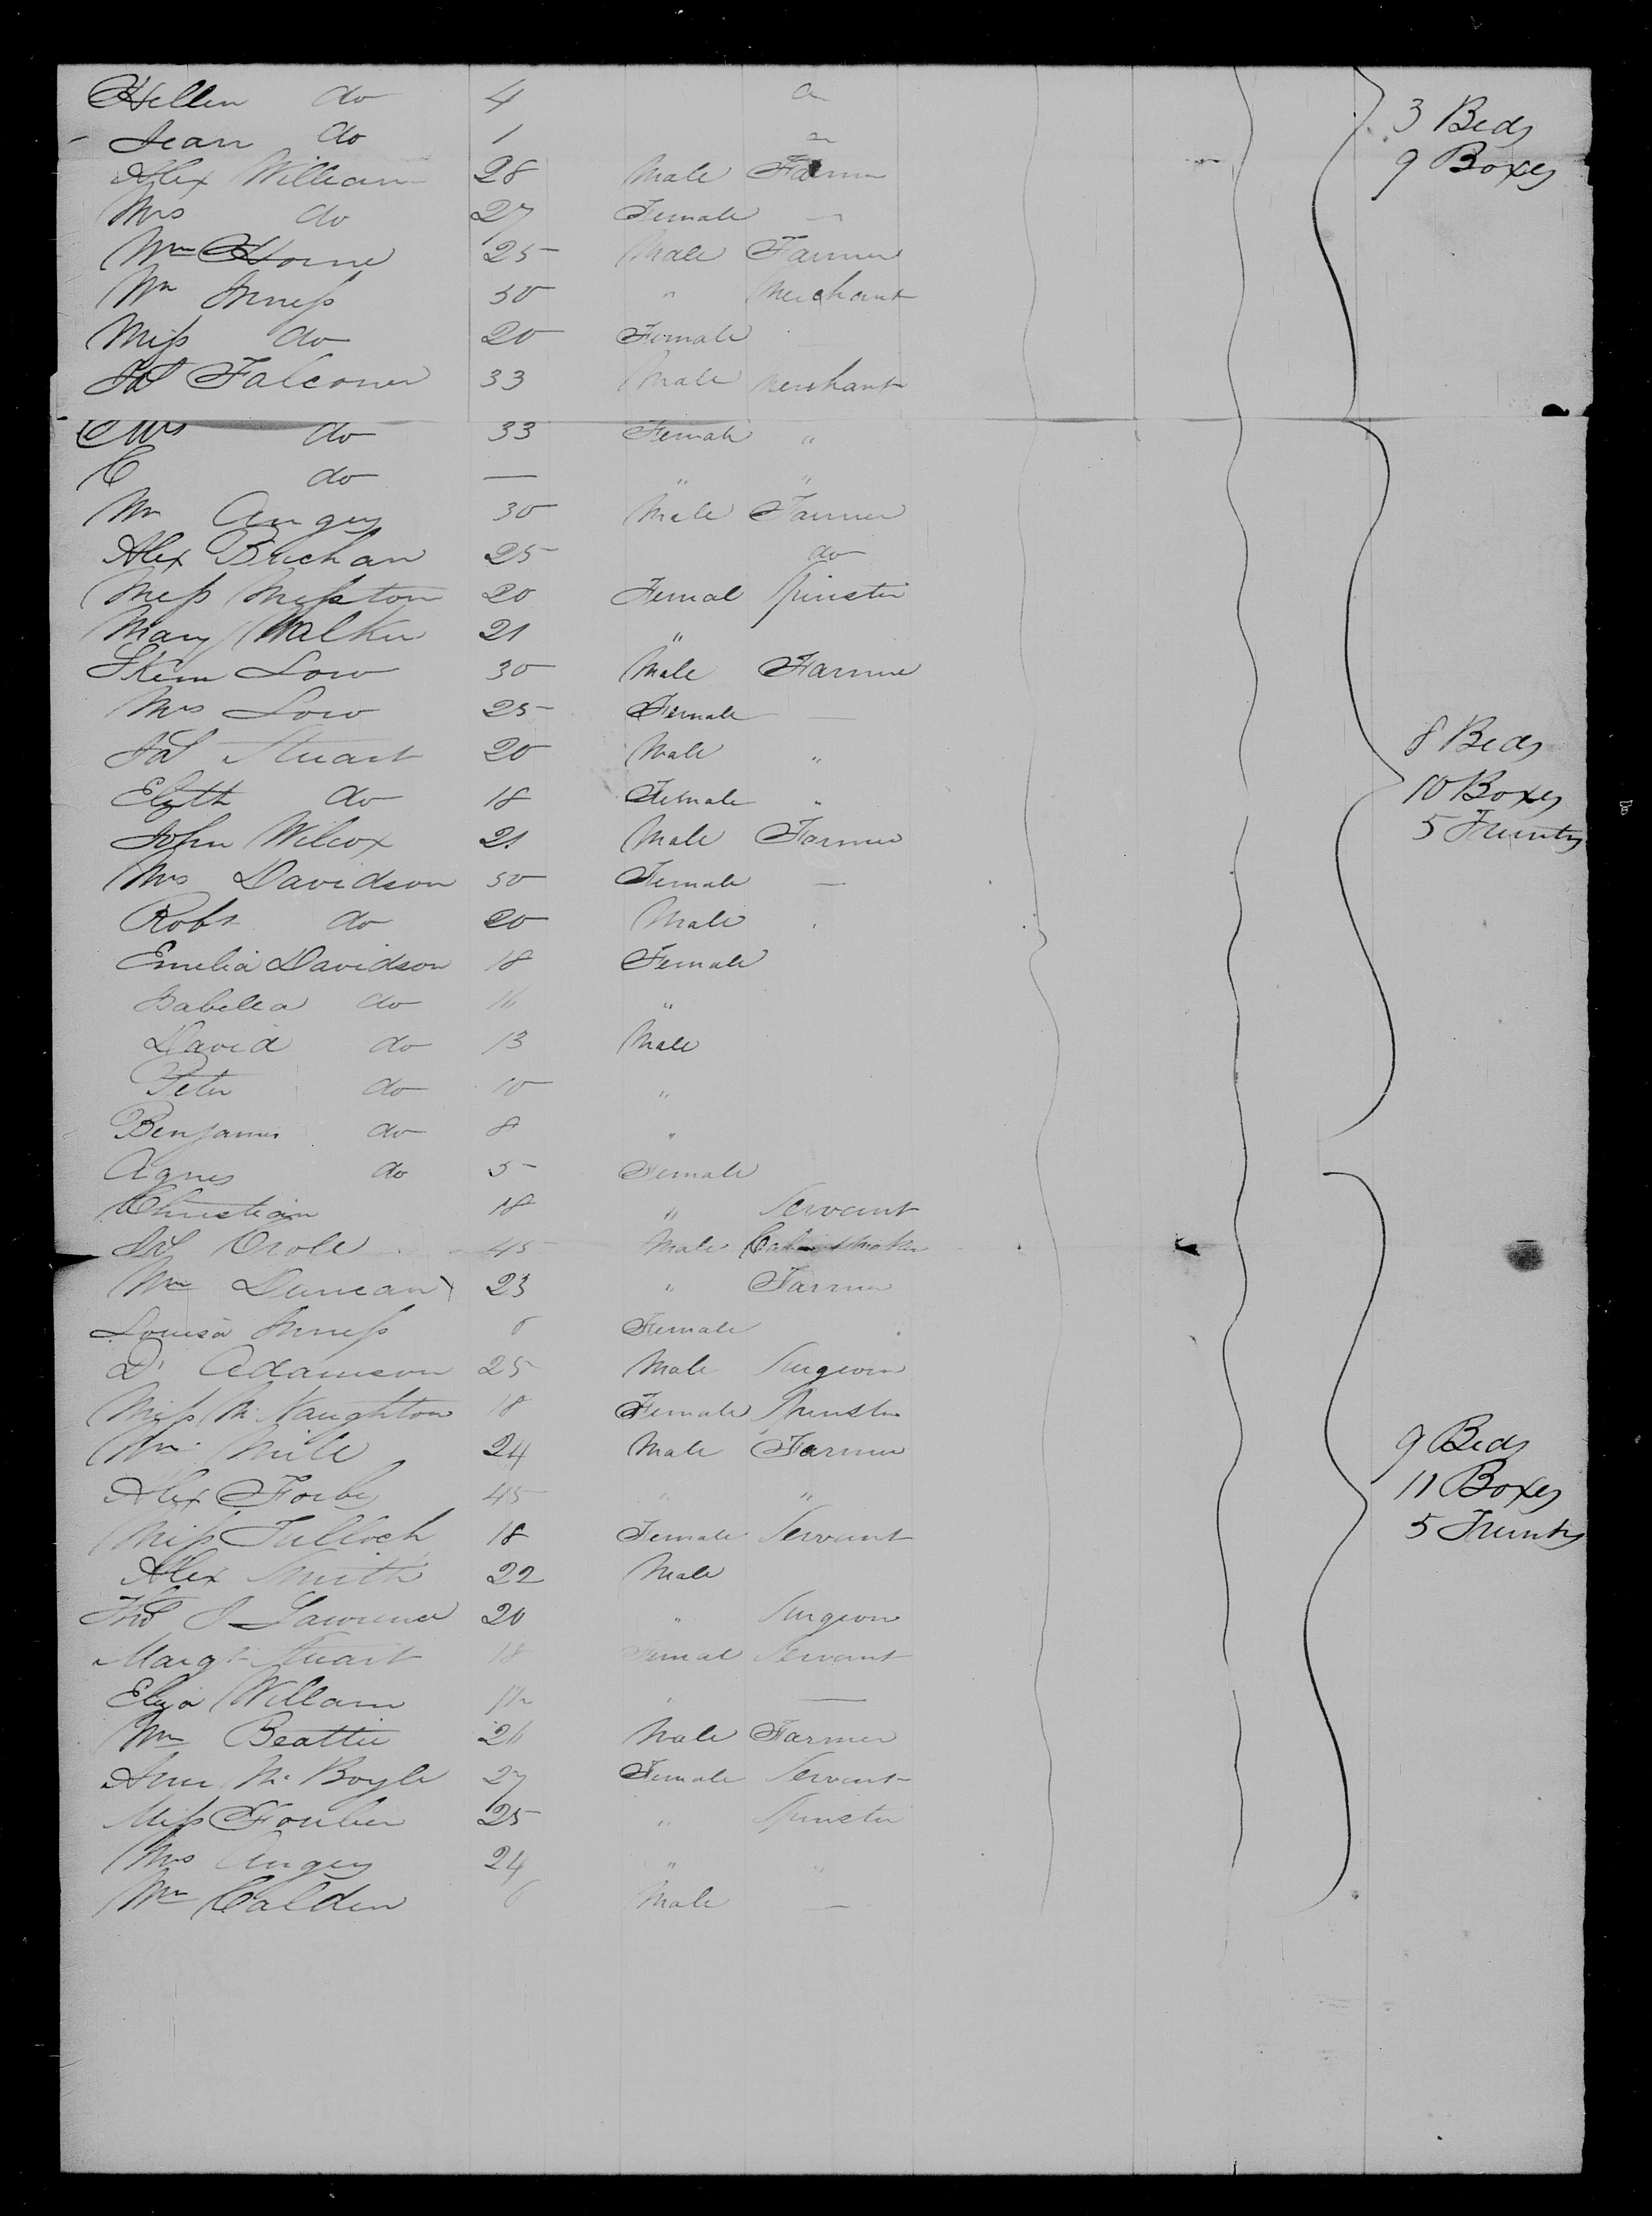 Hellen do 4 "
Jean do 1 "
Alex William 28 Male Farmer
Mrs do 27 Female —
Wm Horne 25 Male Farmer
Wm Inness 30 " Merchant
Miss do 20 Female —
Jas Falconer 33 Male Merchant
Mrs do 33 Female "
C do — " "
Mr Angus 30 Male Farmer
Alex Buchan 25 do
Miss Messton 20 Femal Spinster
Mary Walker 21 "
Low 30 Male Farmer
Mrs Low 25 Female —
Jas Stuart 20 Male "
Elizth do 18 Female "
John Wilcox 21 Male Farmer
Mrs Davidson 50 Female —
Robt do 20 Male
Emelia Davidson 18 Female
Isabella do 16 "
David do 13 Male
Peter do 10 "
Benjamin do 8 "
Agnes do 5 Female
Christian 18 " Servant
Jas 45 Male
Wm Duncan 23 " Farmer
Louisa Inness 6 Female
Dr Adamson 25 Male Surgeon
Miss McNaughton 18 Female Spinster
Wm Mill 24 Male Farmer
Alex Forbes 45 " "
Miss Tulloch 18 Female Servant
Alex Smith 22 Male
Thos J Lawrence 20 " Surgeon
Margt Stuart 18 Femal Servant
Eliza Willam "  —
Wm Beattie 26 Male Farmer
Ann Mc Boyle 27 Female Servant
Miss 25 " Spinster
Mrs Angus 24 " "
Wm Calder 6 Male —
3 Beds
9 Boxes
8 Beds
10 Boxes
5 Trunks
9 Beds
11 Boxes
5 Trunks